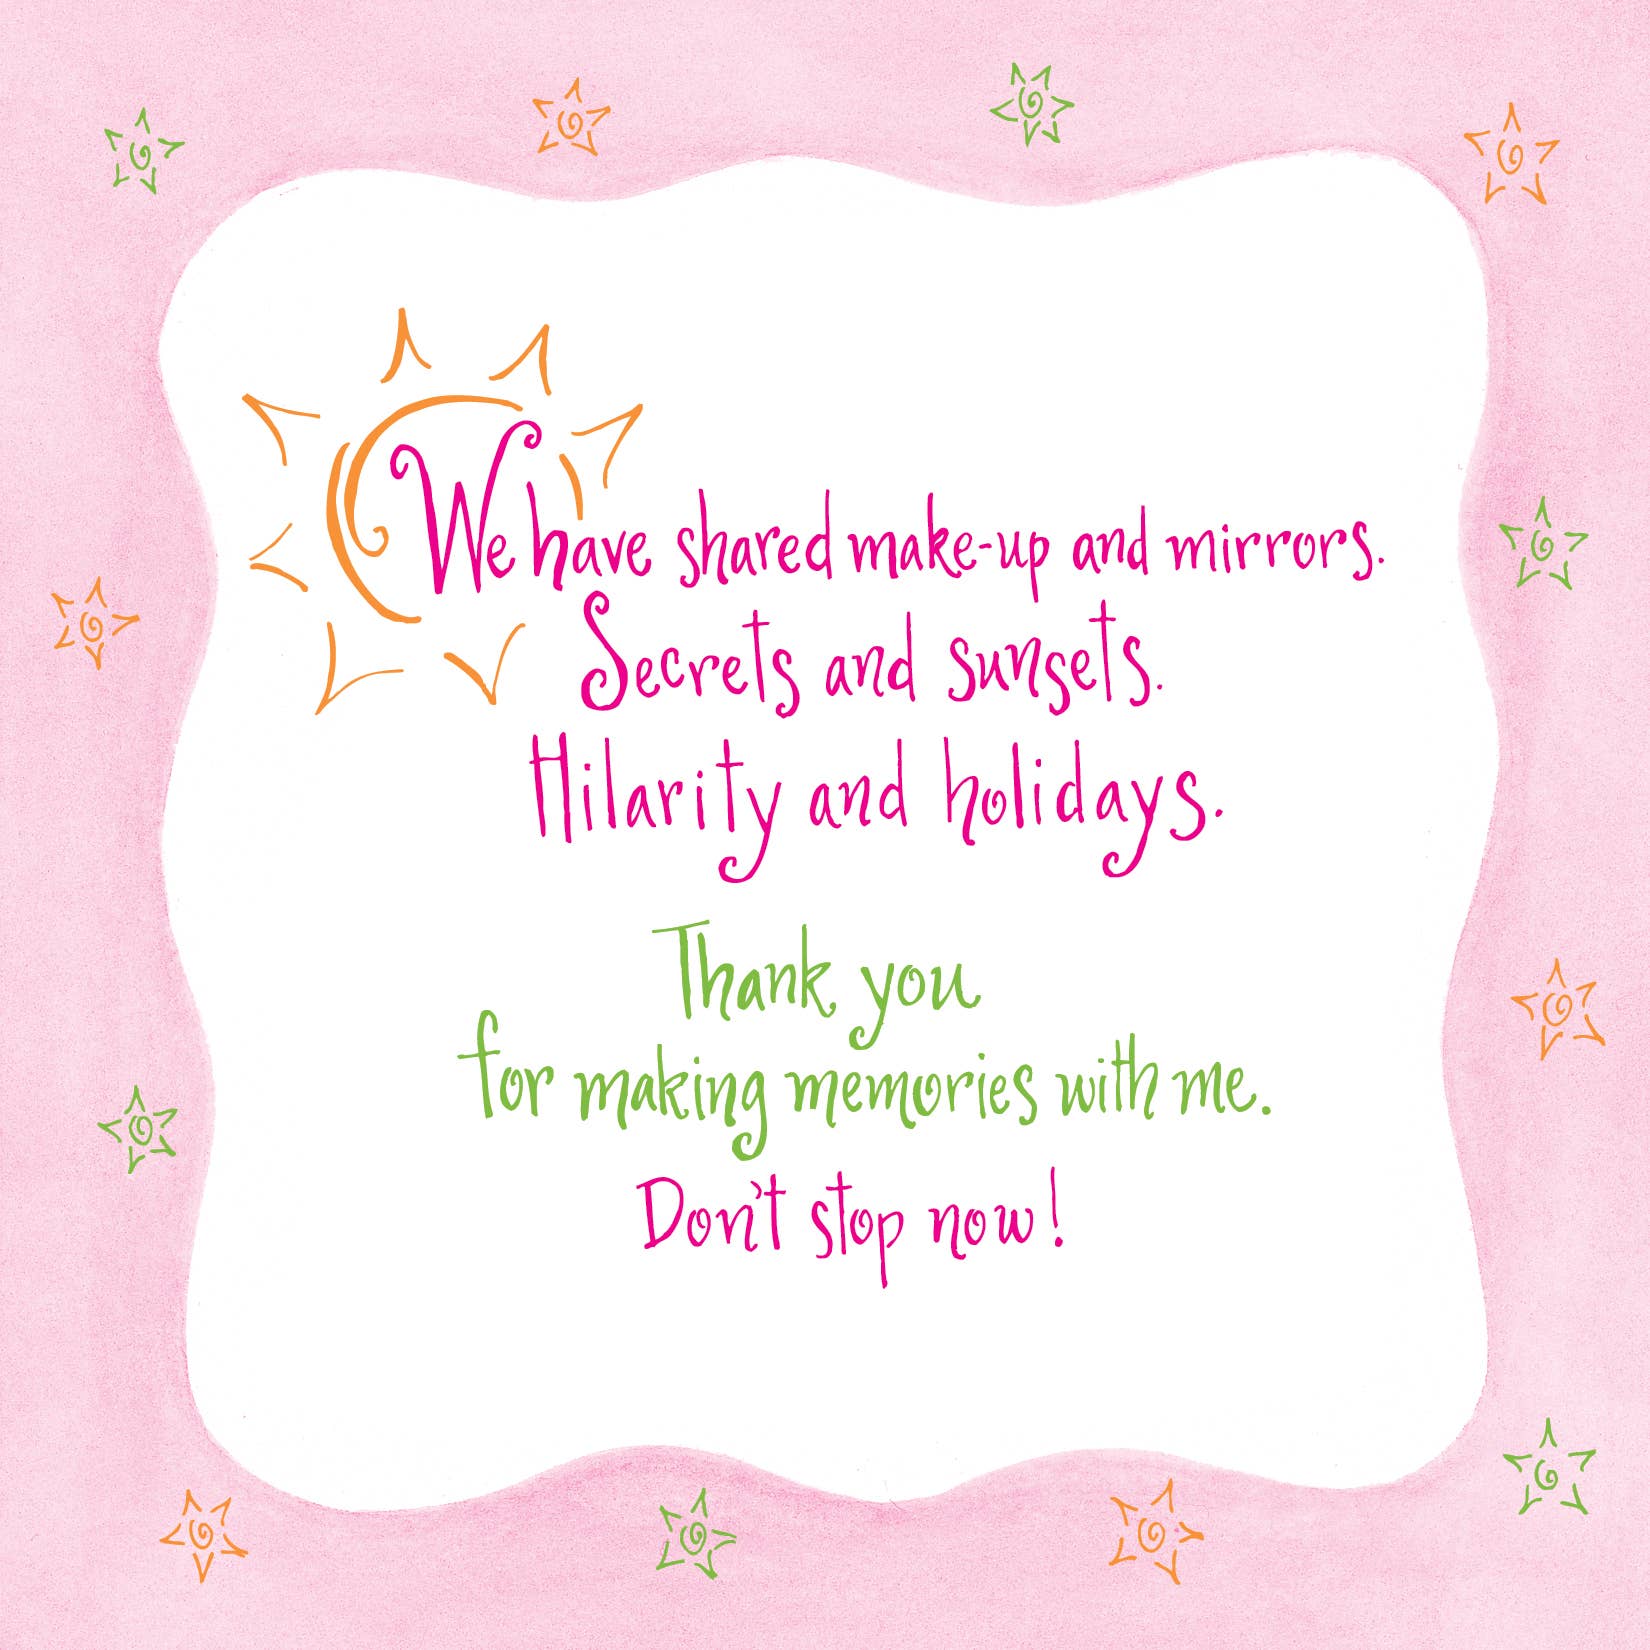 We have shared make-up and mirrors.
Secrets and sunsets.
Hilarity and holidays.
Thank you
for making memories with me.
Don't stop now!